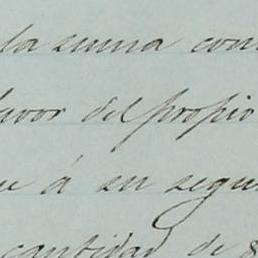 la suma con
favor del propio
ue á su segu
cantidad de